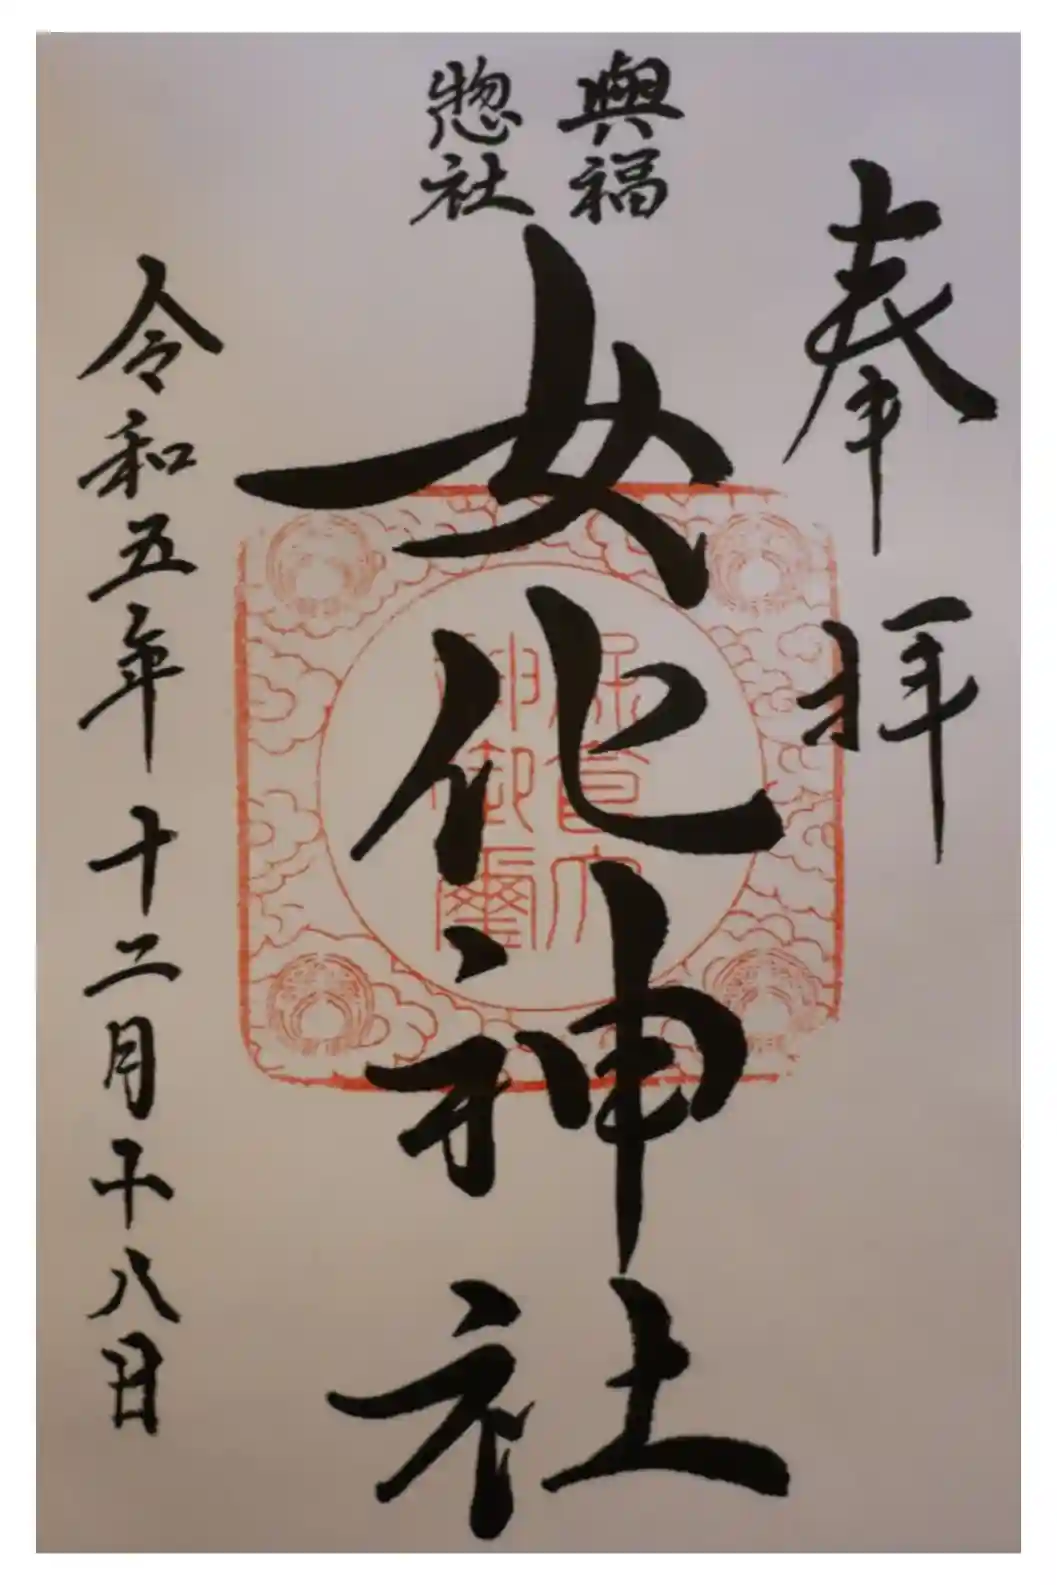 奉拝
興福
惣社
女化神社
令和五年十二月十八日